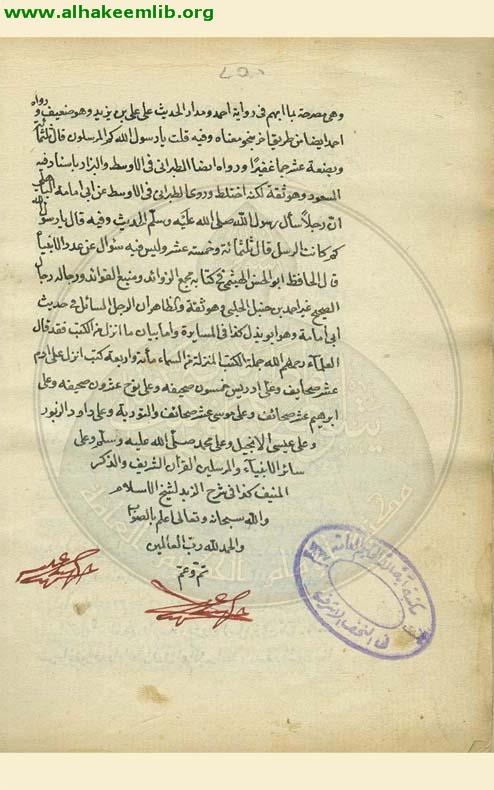 www.alhakeemlib.org
وهى مصرحة بما ابهم فى رواية احمد ومدار الحديث على على بن يزيد وهو ضعيف ورواه
احمد ايضا من طريق اخر بنحو معناه وفيه قلت يا رسول الله كم المرسلون قال ثلثمائة
وبضعة عشر جما غفيرا ورواه ايضا الطبرانى فى الاوسط والبزار باسناد فيه
المسعودى وهو ثقة لكنه اختلط وروى الطبرانى فى الاوسط عن ابى امامة الباهلى
ان رجلا سأل رسول الله صلى الله عليه وسلم الحديث وفيه قال يا رسول الله
كم كانت الرسل قال ثلثمائة وخمسة عشر وليس فيه سؤال عن عدد الانبياء
قال الحافظ ابو الحسن الهيثمى فى كتابه مجمع الزوائد ومنبع الفوائد ورجاله رجال
الصحيح غير احمد بن خليل الحلبى وهو ثقة والظاهر ان الرجل السائل فى حديث
ابى امامة وهو ابو ذر كذا فى المسايرة واما بيان ما انزل من الكتب فقد قال
العلماء رحمهم الله جملة الكتب المنزلة من السماء مأئة واربعة كتب انزل على ادم
عشر صحايف وعلى ادريس خمسون صحيفه وعلى نوح عشرون صحيفه وعلى
ابرهيم عشر صحائف وعلى موسى عشر صحائف والتورية وعلى داود الزبور
وعلى عيسى الانجيل وعلى محمد صلى الله عليه وسلم وعلى
سائر الانبياء والمرسلين القرآن الشريف والذكر
المنيف كذا فى شرح الزبد لشيخ الاسلام
والله سبحانه وتعالى اعلم بالصواب
والحمد لله رب العالمين
تم وعم